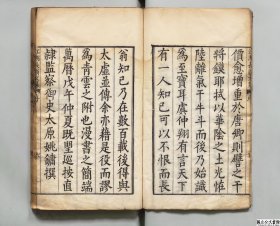 價愈增重於唐卿則譬之干
將鏌耶拭以華陰之土光怪
陸離氣干牛斗而後乃始識
為至寶耳虞仲翔有言天下
有一人知已可以不恨而長
翁知已乃在數百載後得與
太虛並傳余於藉是役而謬
為青雲之附也漫書之簡端
萬曆戊午仲夏既朢巡按直
隸監察御史太原姚鏞撰